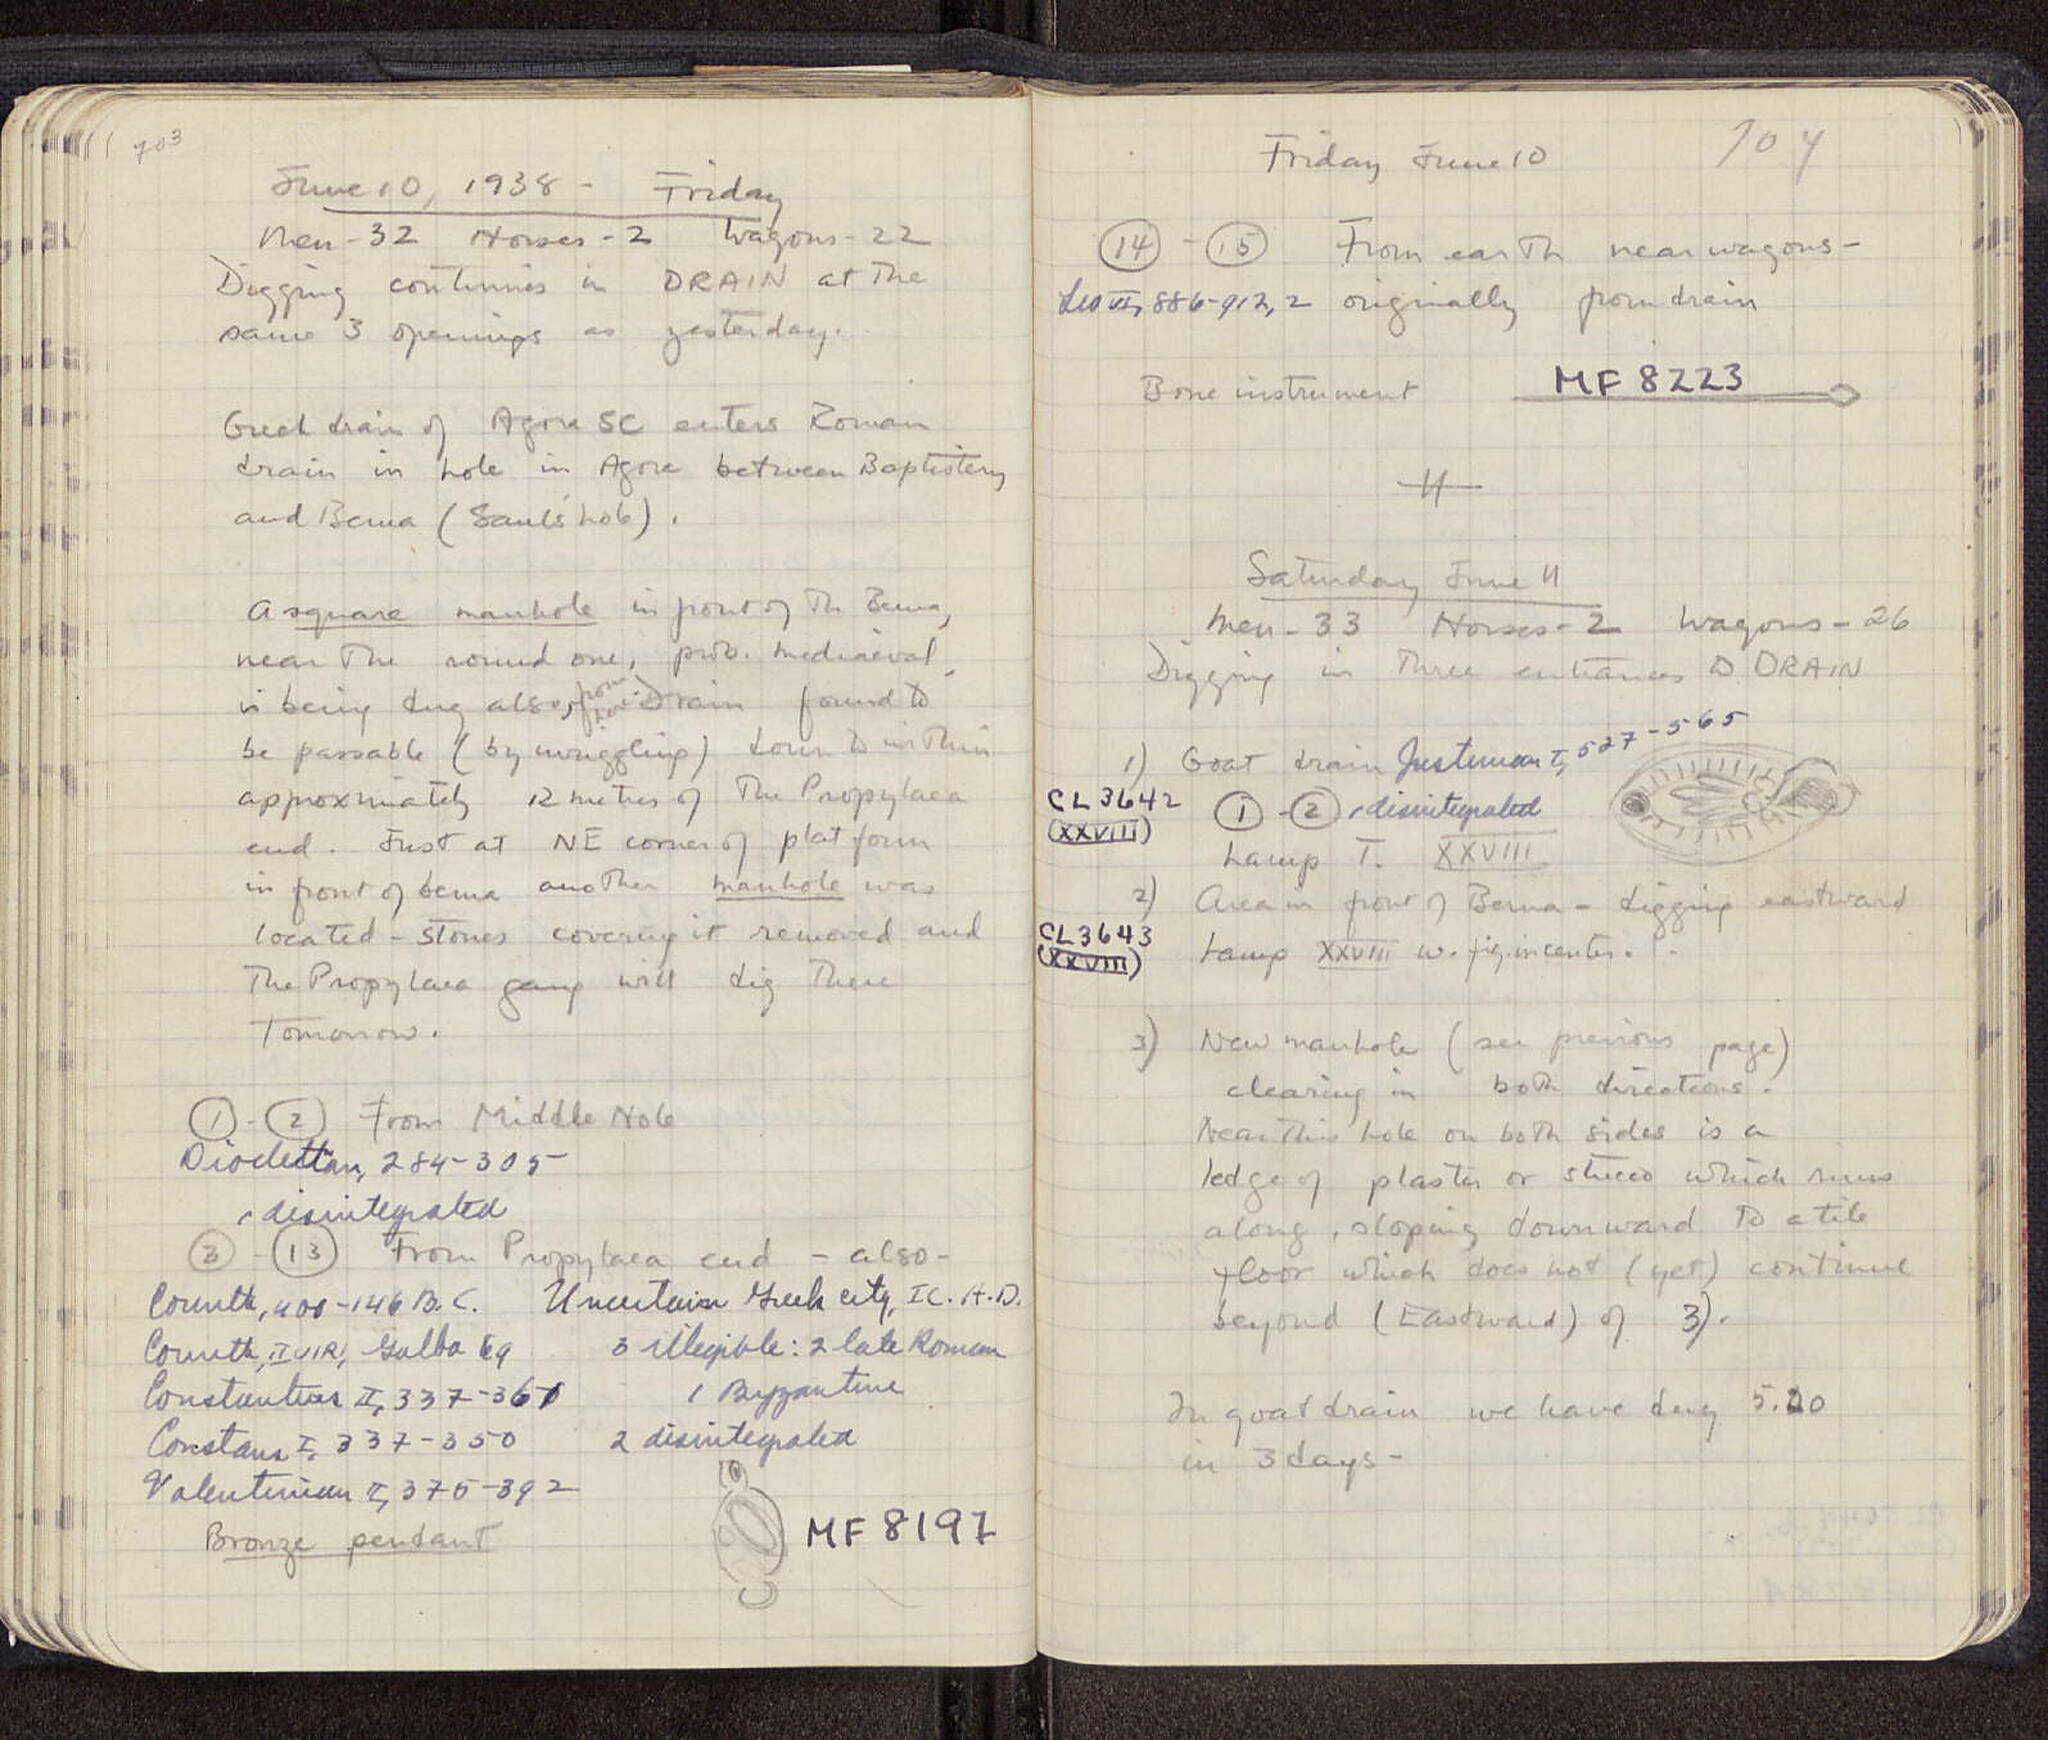 703
June 10, 1938 - Friday
Men - 32 Horses - 2 Wagons - 22
Digging continues in DRAIN at the
same 3 openings as yesterday.
Greek drain of Agora SC enters Roman
drain in hole in Agora between Baptistery
and Bema (Saul's hole).
A square manhole in front of the Bema,
near the round one, prob. mediaeval,
is being dug also, from here. Drain found to
be passable (by wriggling) down to within
approximately 12 metres of the Propylaea
end. Just at NE corner of platform
in front of bema another manhole was
located - stones covering it removed and
the Propylaea gang will dig there
tomorrow.
1 - 2 From Middle Hole
Diocletian, 284-305
1 disintegrated
3 - 13 From Propylaea end - also -
Corinth, 400-146 B.C. Uncertain Greek city, I C. A.D.
Corinth, IIVIR, Galba 69 3 illegible: 2 late Roman
Constantius II, 337-361 1 Byzantine
Constans I, 337-350 2 disintegrated
Valentinian II, 375-392
Bronze pendant MF 8197
704
Friday June 10
14 - 15 From earth near wagons -
Leo VI, 886-912, 2 originally from drain
Bone instrument MF 8223
Saturday June 11
Men - 33 Horses - 2 Wagons - 26
Digging in three entrances to DRAIN
1) Goat drain Justinian I, 527-565
CL 3642 1 - 2 1 disintegrated
(XXVIII)
Lamp T. XXVIII
2) Area in front of Bema - digging eastward
CL 3643
(XXVIII) Lamp XXVIII w. fig. in center.
3) New manhole (see previous page)
clearing in both directions.
Near this hole on both sides is a
ledge of plaster or stucco which runs
along, sloping downward to a tile
floor which does not (yet) continue
beyond (Eastward) of 3).
In goat drain we have dug 5.20
in 3 days -